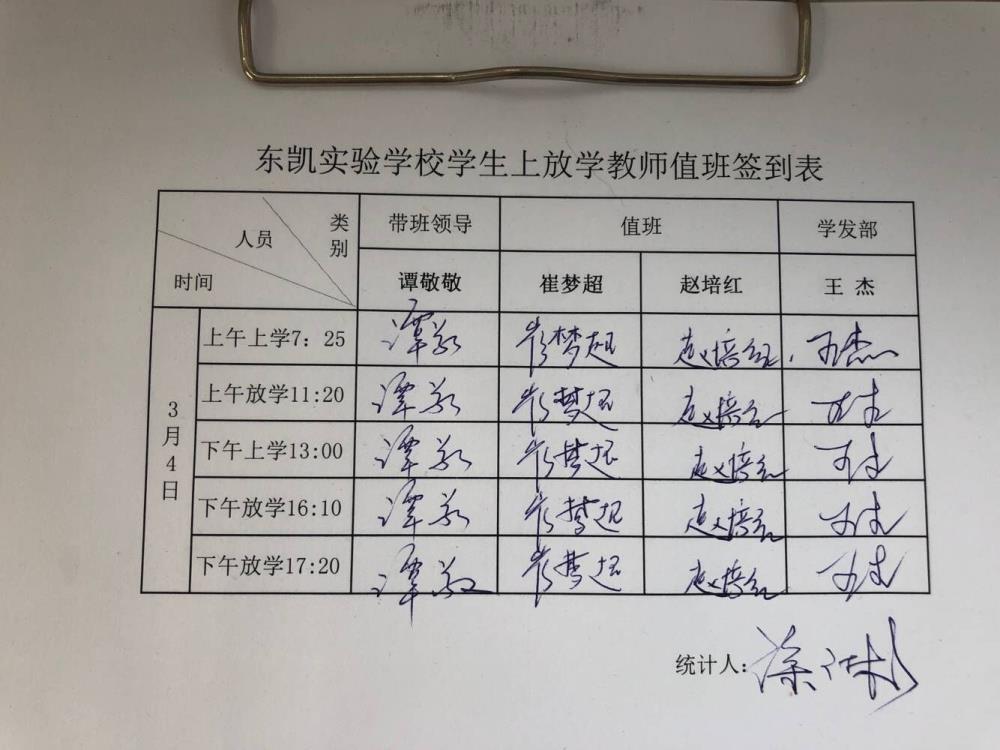 东凯实验学校学生上放学教师值班签到表
类别 人员 时间 带班领导 值班 学发部
谭敬敬 崔梦超 赵培红 王 杰
3月4日
上午上学7：25 谭敬 崔梦超 赵培红 王杰
上午放学11:20 谭敬 崔梦超 赵培红 王杰
下午上学13:00 谭敬 崔梦超 赵培红 王杰
下午放学16:10 谭敬 崔梦超 赵培红 王杰
下午放学17:20 谭敬 崔梦超 赵培红 王杰
统计人: